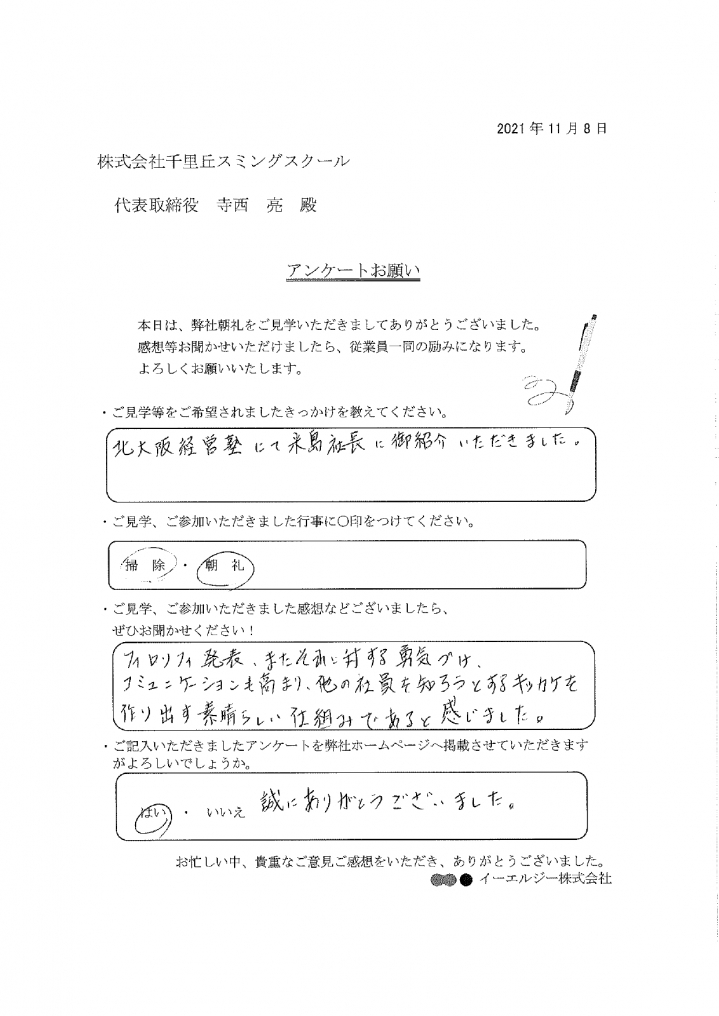 2021年11月8日
株式会社千里丘スミングスクール
代表取締役　寺西　亮　殿
アンケートお願い
本日は、弊社朝礼をご見学いただきましてありがとうございました。
感想等お聞かせいただけましたら、従業員一同の励みになります。
よろしくお願いいたします。
・ご見学等をご希望されましたきっかけを教えてください。
北大阪経営塾にて来島社長に御紹介いただきました。
・ご見学、ご参加いただきました行事に〇印をつけてください。
掃　除　・　朝　礼
・ご見学、ご参加いただきました感想などございましたら、
ぜひお聞かせください！
フィロソフィ発表、またそれに対する勇気づけ、
コミュニケーションも高まり、他の社員を知ろうとするキッカケを
作り出す素晴らしい仕組みであると感じました。
・ご記入いただきましたアンケートを弊社ホームページへ掲載させていただきます
がよろしいでしょうか。
はい　・　いいえ　誠にありがとうございました。
お忙しい中、貴重なご意見ご感想をいただき、ありがとうございました。
イーエルジー株式会社